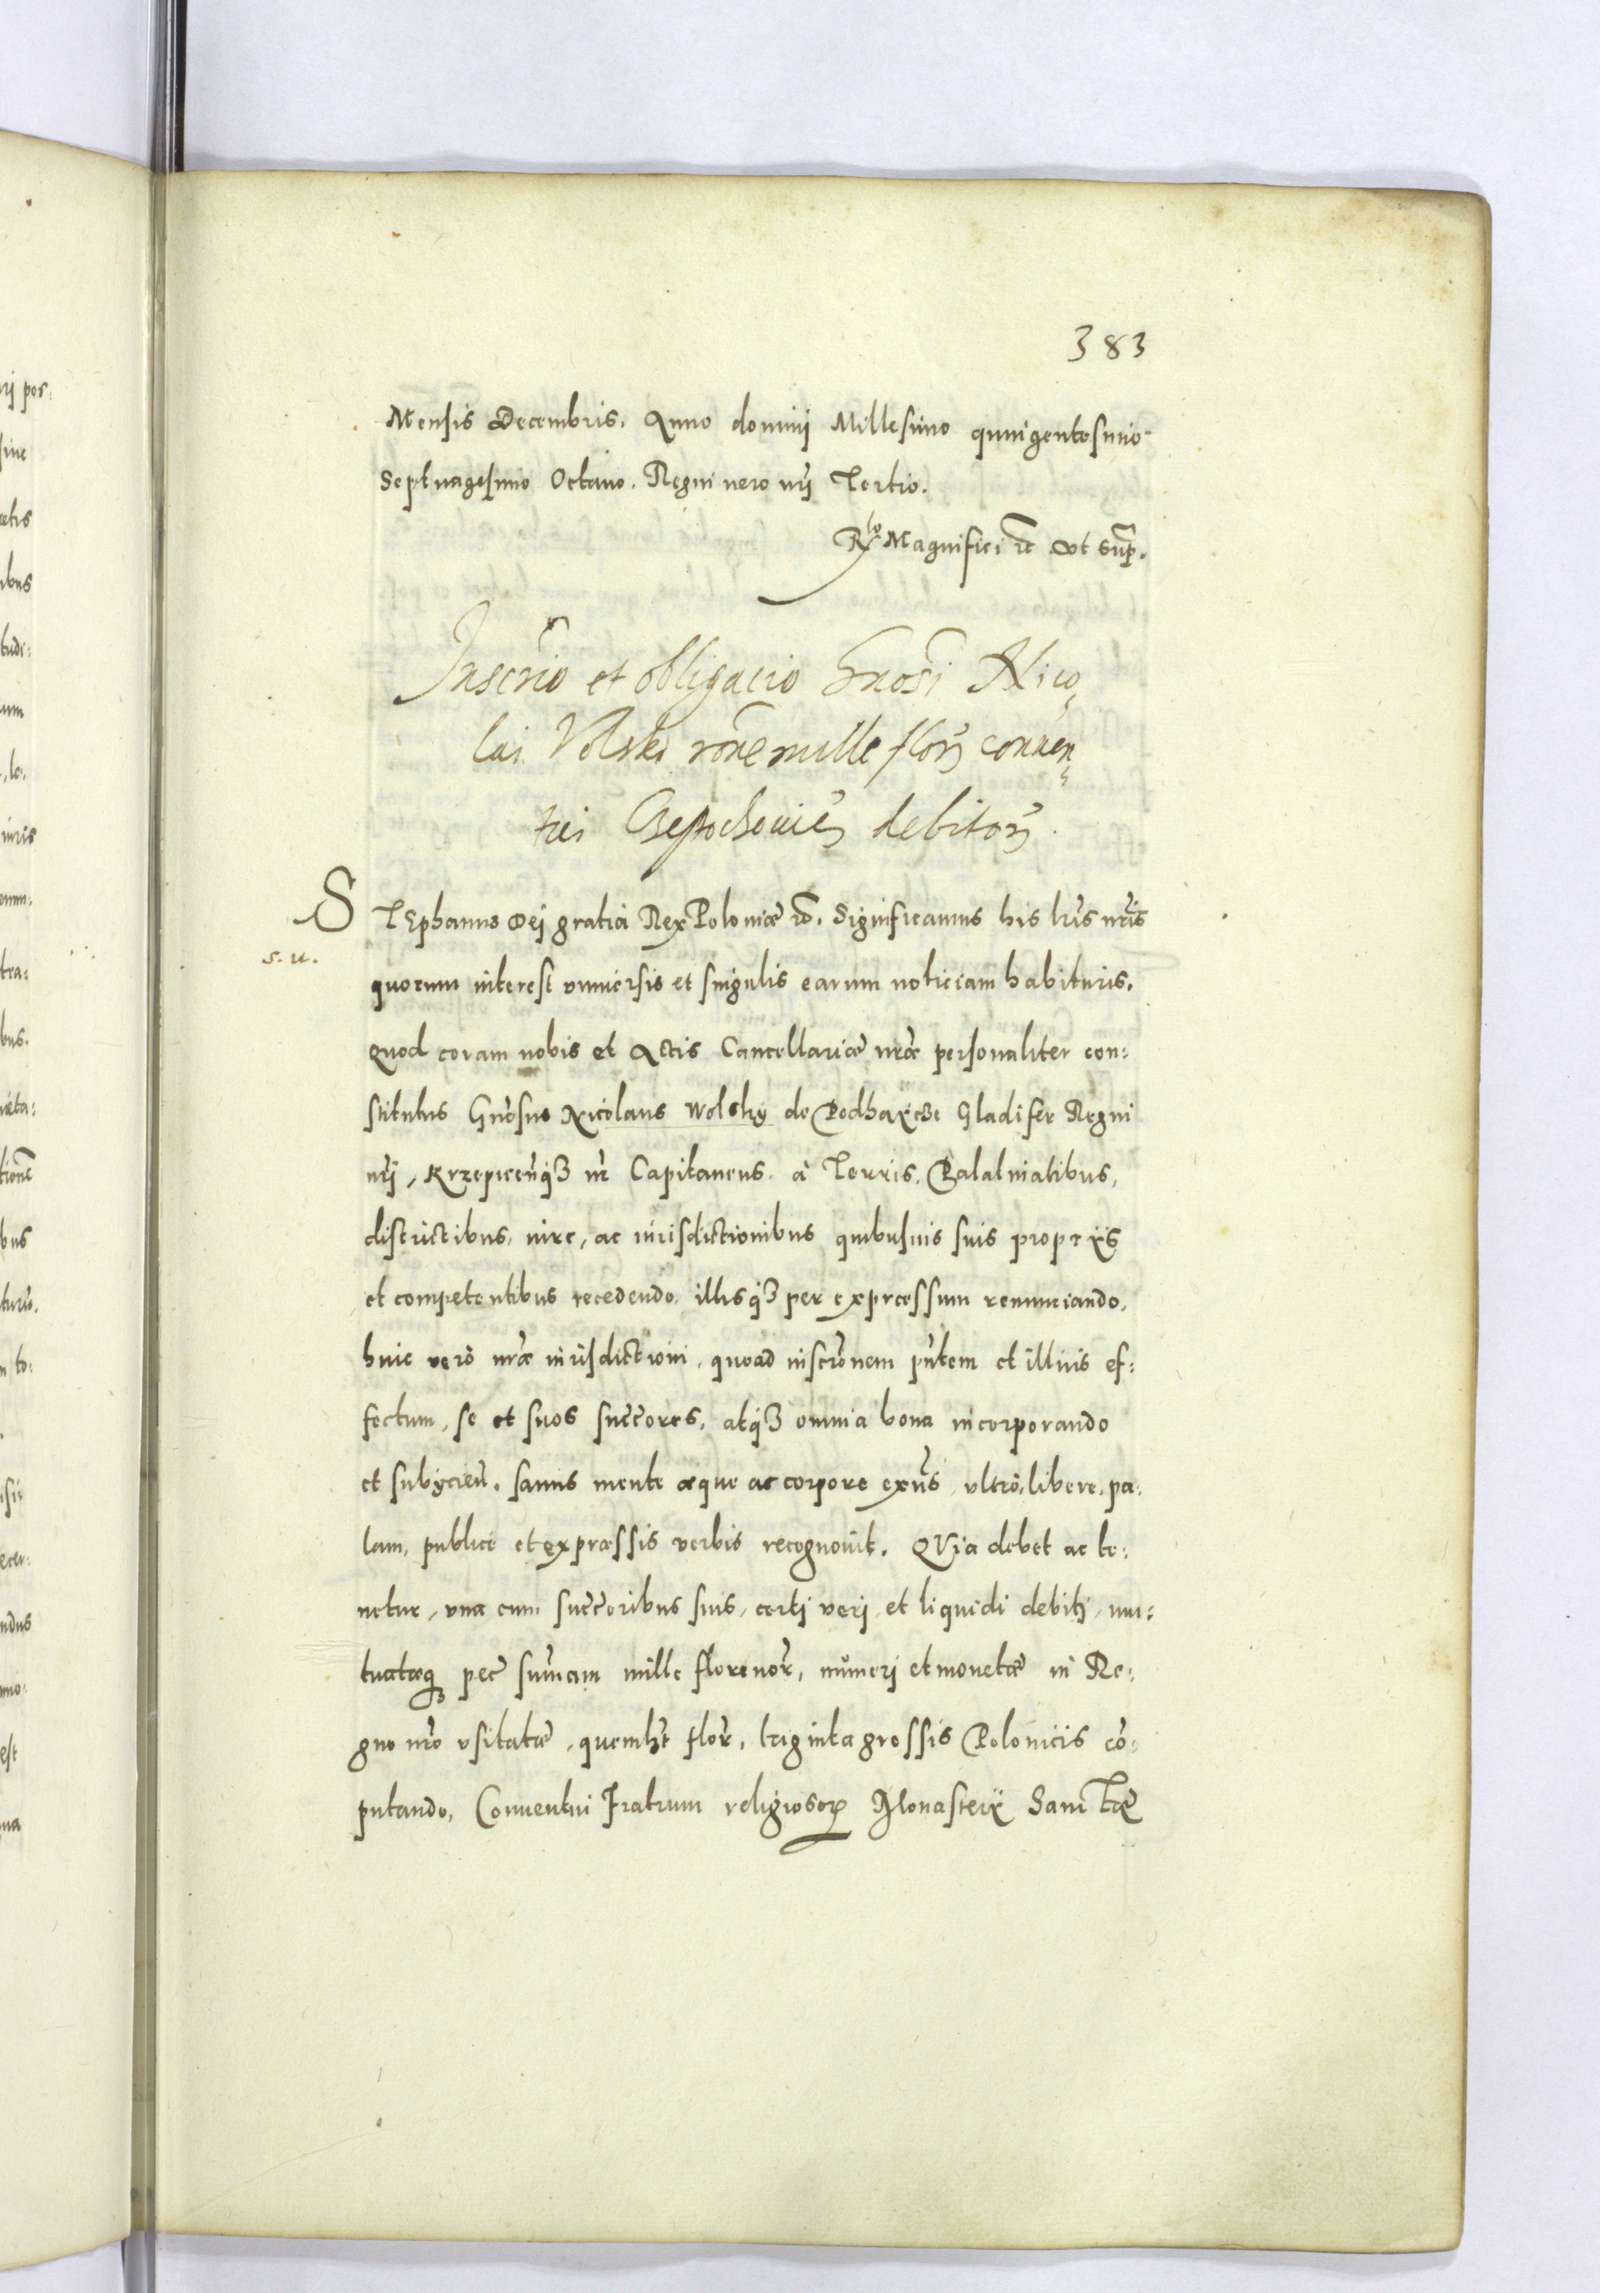 383
Mensis Decembris. Anno dominij Millesimo quingentesimo
Septuagesimo Octauo. Regni uero nrij Tertio.
Rlo Magnifici etc Vt sup.
Inscrio et obligacio Gnosi Nico,
lai Volski rone mille flor conuen,
tui Czestochouien debitor.
STEphanus Dej gratia Rex Poloniæ etc. Significamus his lris nris
s. u.
quorum interest vniuersis et singulis earum noticiam habituris.
Quod coram nobis et Actis Cancellariæ nræ personaliter con:
stitutus Gnosus Nicolaus Wolsky de Podhaycze Gladifer Regni
nrj, Krzepicenqȝ nr Capitaneus. à Terris. Palatinatibus,
districtibus, iure, ac iurisdictionibus quibusuis suis proprÿs
et competentibus recedendo. illisqȝ per expressum renunciando.
huic verò nræ iurisdictioni, quoad inscronem pntem et illius ef:
fectum, se et suos succores, atqȝ omnia bona incorporando
et subÿcien. sanus mente æque ac corpore exns, vltrò, libere, pa:
lam, publice et expræssis verbis recognouit. QVia debet ac te:
netur, vna cum succoribus suis, certj verj et liquidi debitj, mu:
tuatæqȝ pec summam mille florenor, numerj et monetæ in Re:
gno nro vsitatæ, quemlit flor, triginta grossis Polonicis cō:
putando, Conuentui Fratrum religiosor Monasterÿ Sanctæ